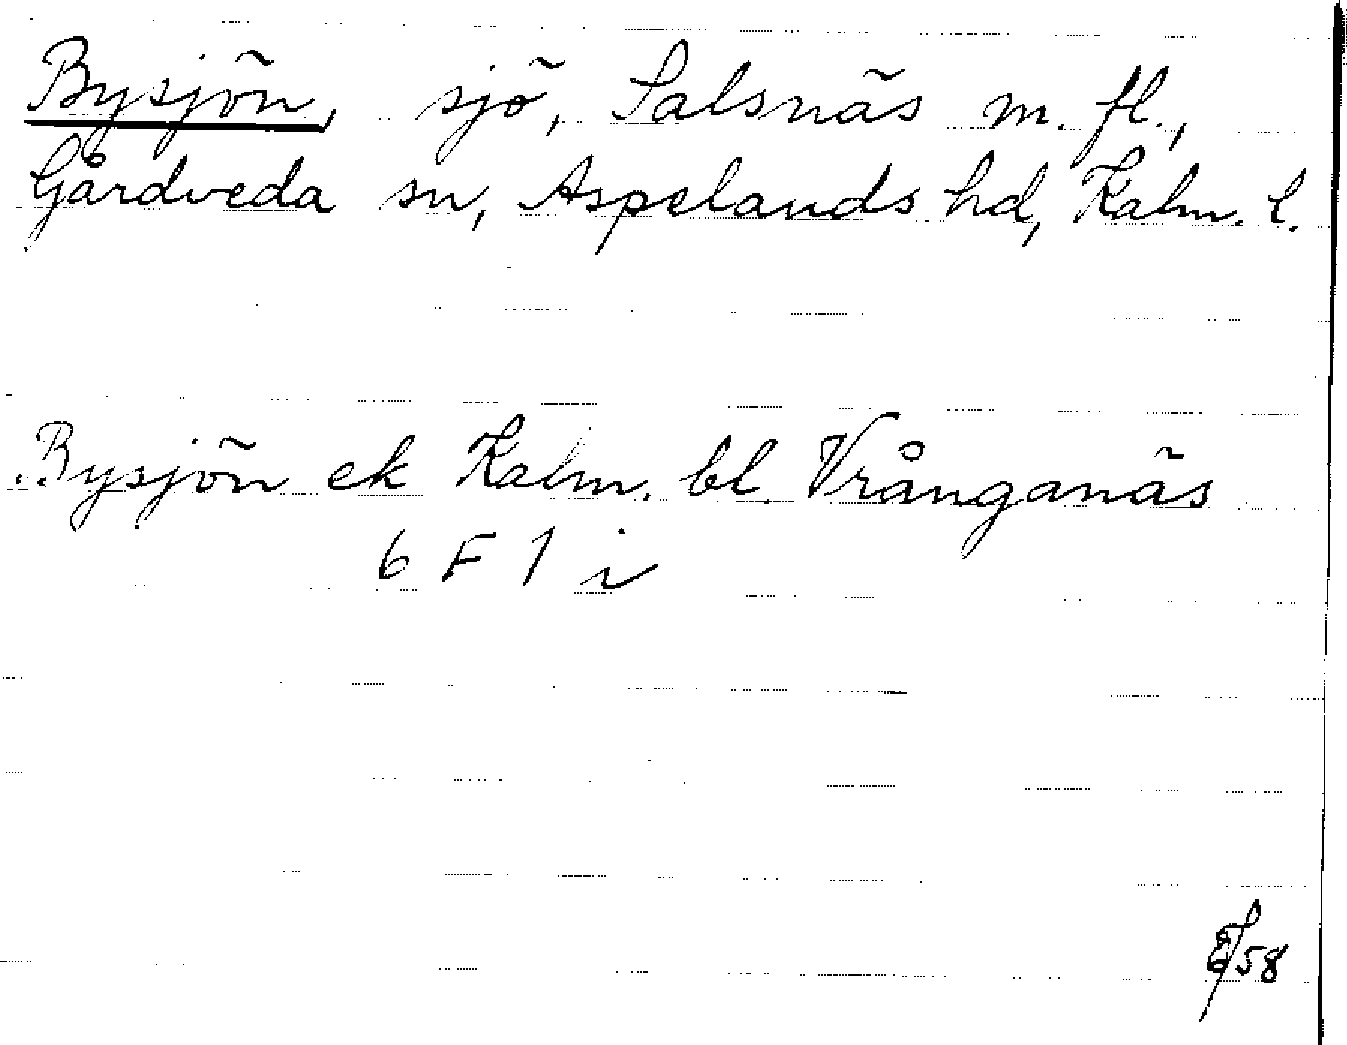 Bysjön, sjö, Salsnäs m. fl.,
Gårdveda sn, Aspelands hd, Kalm. l.
Bysjön ek Kalm. bl. Vrånganäs
6 F 1 i
58